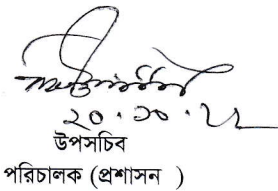 ২০.১০.২২
উপসচিব
পরিচালক (প্রশাসন )